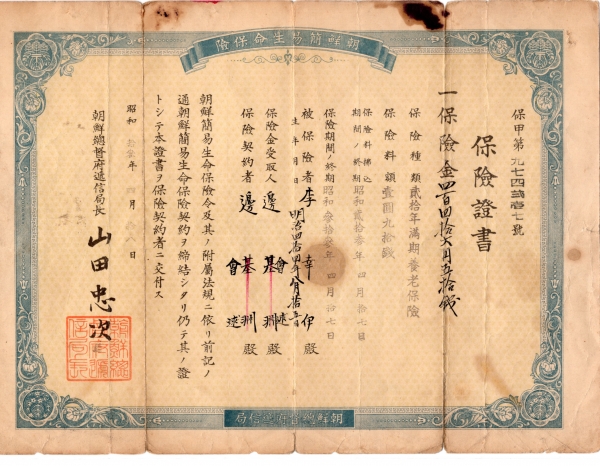 朝鮮簡易生命保險
保甲第九七四貳壹七號
保險證書
一保險金四百四拾六円五拾錢
保險種類貳拾年滿期養老保險
保險料額壹圓九拾錢
保險料拂込
期間ノ終期昭和貳拾參年四月拾七日
保險期間ノ終期昭和參拾參年四月拾七日
被保險者李幸伊殿
生年月日明治四拾四年八月拾五日
保險金受取人邊基洲殿
保險契約者邊基洲殿
朝鮮簡易生命保險令及其ノ附屬法規ニ依リ前記ノ
通朝鮮簡易生命保險契約ヲ締結シタリ仍テ其ノ證
トシテ本證書ヲ保險契約者ニ交付ス
昭和年月日
朝鮮總督府遞信局長山田忠次
朝鮮總督府遞信局